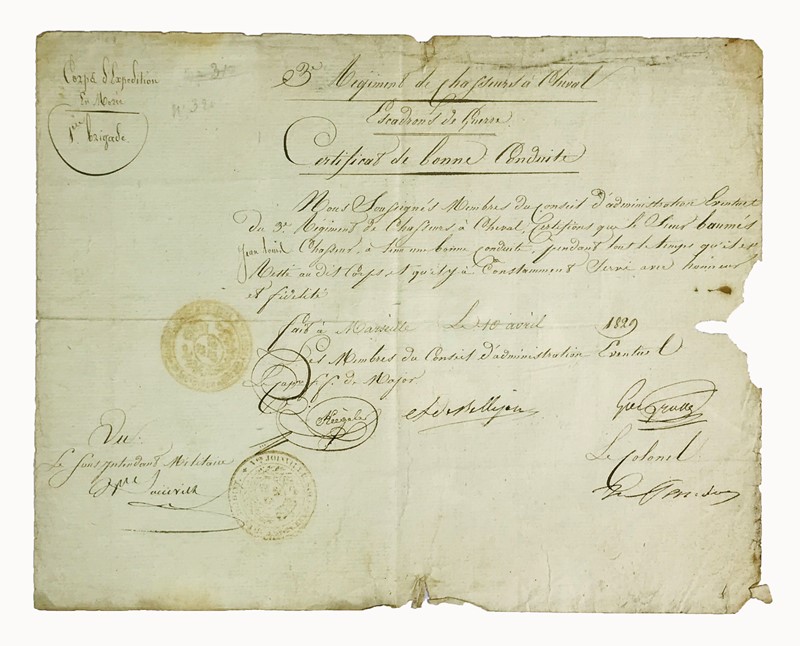 Corps d'Expedition
En Morée
1ere brigade.
3e Regiment de Chasseurs à Cheval
Escadrons de Guerre
Certificat de bonne Conduite
Nous Soussignés Membres du Conseil d'administration Eventuel
du 3e Regiment de Chasseurs à Cheval, Certifions que le Sieur baumés
Jean Louis Chasseur, à tenu une bonne conduite, pendant tout le temps qu'il est
Resté au dit Corps et qu'il y à Constamment Servi avec honneur
et fidelité
fait à Marseille Le 18 avril 1829
Les Membres du Conseil d'administration Eventuel
Le Capne ff. de Major
Vu
Le Sous intendant Militaire
Le Colonel
JOINVILLE